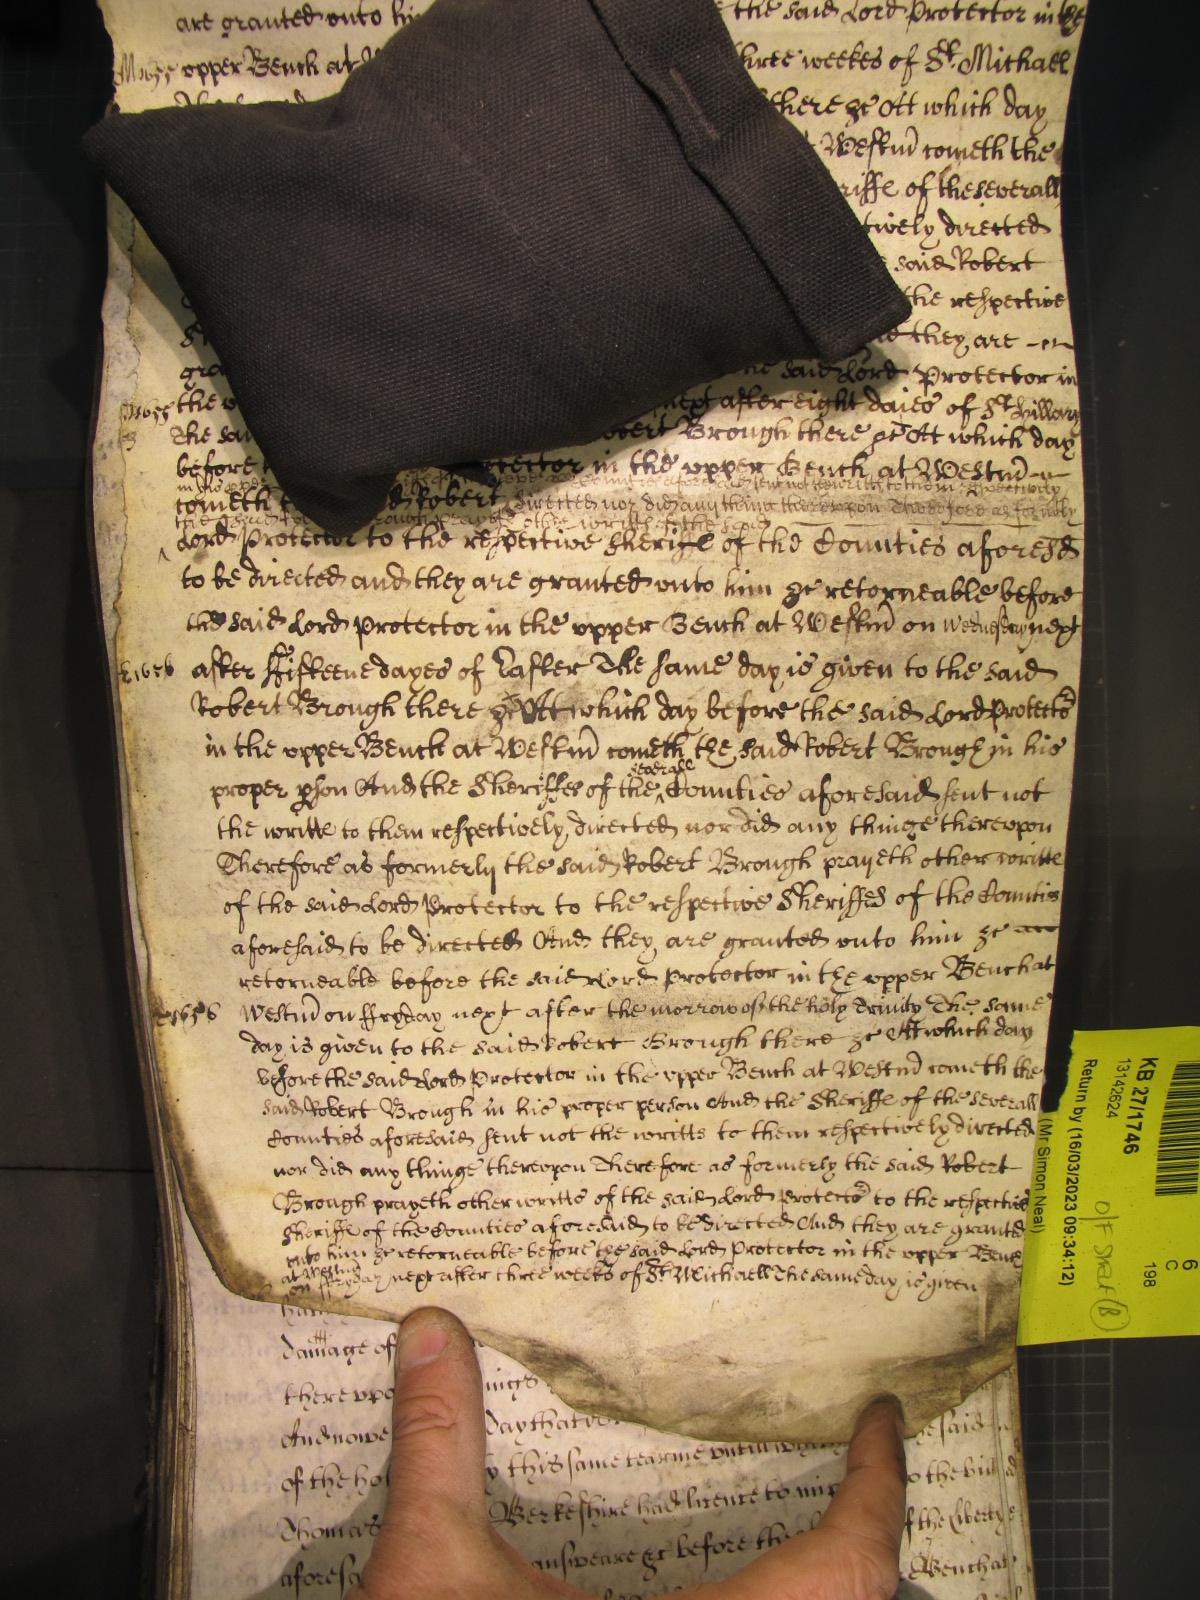 are granted unto hi the said Lord Protector in the
M 1655 upper Bench at three weekes of St. Michael
there &c Att which day
Westm cometh the
riffe of the severall
tively directed
said Robert
the respective
they are
gra the said Lord Protector in
the u next after eight daies of St Hillary
The sai obert Brough there &c Att which day
before t tector in the upper Bench at Westm
cometh t d Robert directed nor did any thing thereupon Therefore as formerly
the said Brough prayeth other writts of the said
Lord Protector to the respective Sheriffe of the Counties aforesd
to be directed and they are granted unto him &c retorneable before
the said Lord Protector in the upper Bench at Westm on Wednesday next
E 1656 after fifteene dayes of Easter The same day is given to the said
Robert Brough there &c Att which day before the said Lord Protector
in the upper Bench at Westm cometh the said Robert Brough in his
proper pson And the Sheriffes of the severall Counties aforesaid sent not
the writts to them respectively directed nor did any thinge thereupon
Therefore as formerly the said Robert Brough prayeth other writts
of the said Lord Protector to the respective Sheriffes of the Counties
aforesaid to be directed And they are granted unto him &c
retorneable before the said Lord Protector in the upper Bench at
1656 Westm on ffryday next after the morrow of the holy Trinity The same
day is given to the said Robert Brough there &c Att which day
before the said Lord Protector in the upper Bench at Westm cometh the
said Robert Brough in his proper person And the Sheriffe of the severall
Counties aforesaid sent not the writts to them respectively directed
nor did any thinge thereupon Therefore as formerly the said Robert
Brough prayeth other writts of the said Lord Protector to the respective
Sheriffe of the Counties aforesaid to be directed And they are granted
unto him &c retorneable before the said Lord Protector in the upper Bench
at Westm
on ffryday next after three weeks of St Michaell The same day is given
damage of
there upo nings
And nowe day that
of the hol y this same tearme untill he said
Thomas Berkeshire had licence to imp o the bill
aforesa answeare &c before the f the Liberty
Bench at
KB 27/1746
13142624
Return by (16/03/2023 09:34:12)
(Mr Simon Neal)
6
C
198